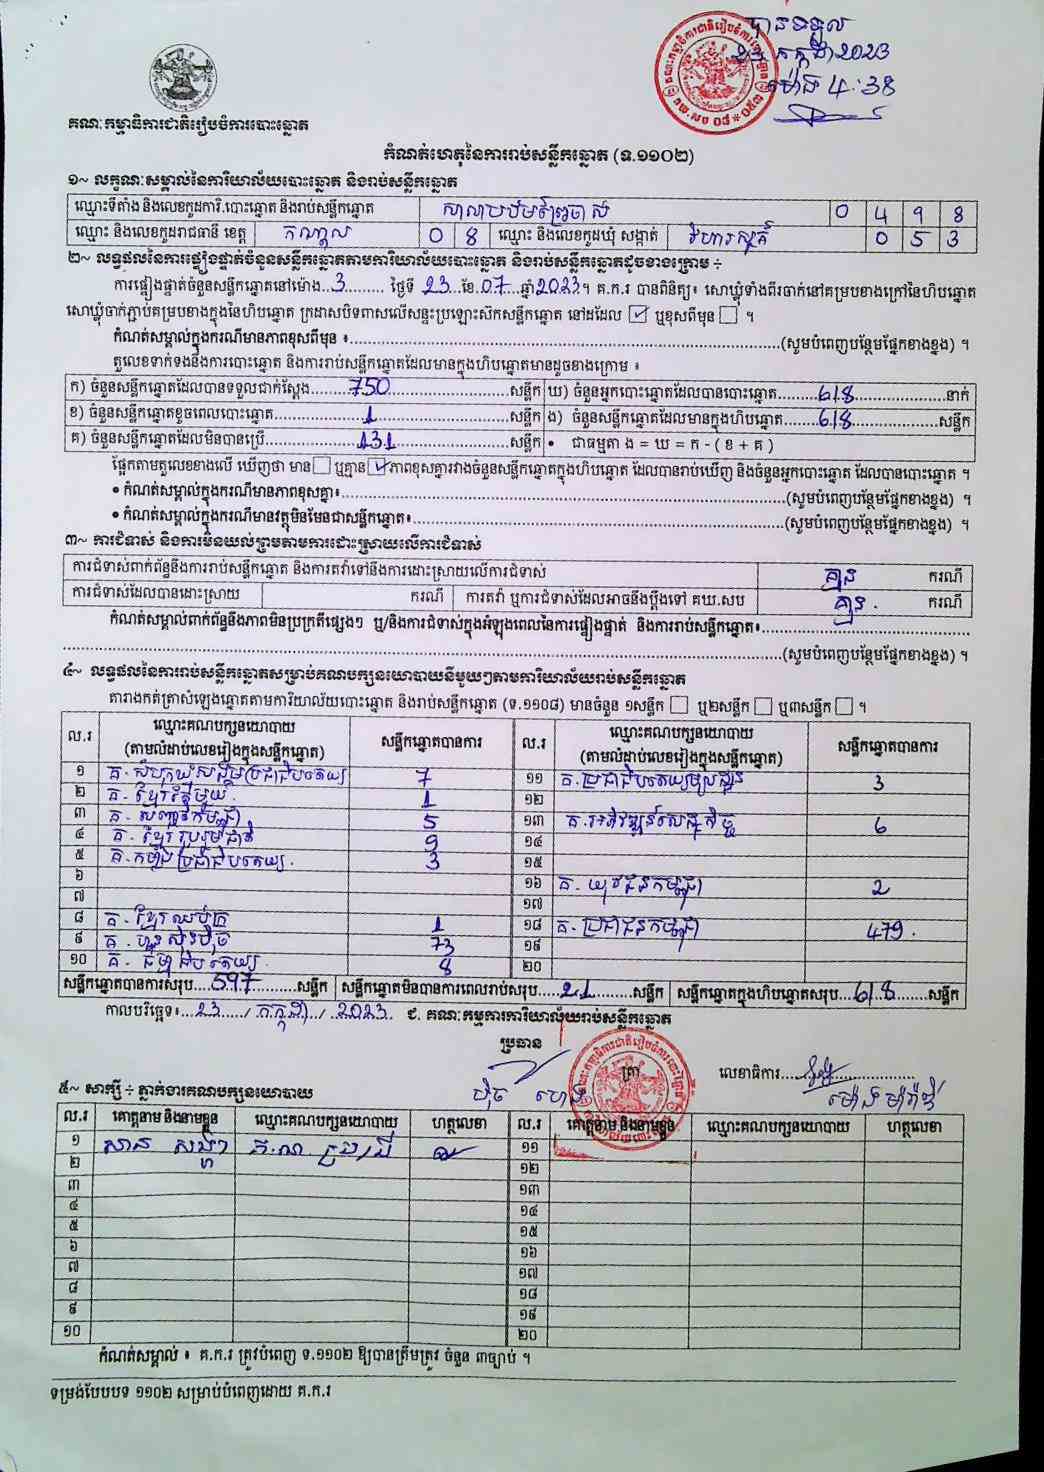 បានទទួល
កក្កដា 2023
ម៉ោង 4:38
គណៈកម្មាធិការជាតិរៀបចំការបោះឆ្នោត
កំណត់ហេតុនៃការរាប់សន្លឹកឆ្នោត (ទ.១១០២)
១~ លក្ខណៈសម្គាល់នៃការិយាល័យបោះឆ្នោត និងរាប់សន្លឹកឆ្នោត
ឈ្មោះទីតាំង និងលេខកូដការិ.បោះឆ្នោត និងរាប់សន្លឹកឆ្នោត 0 4 9 8
ឈ្មោះ និងលេខកូដរាជធានី ខេត្ត កណ្តាល 0 8 ឈ្មោះ និងលេខកូដឃុំ សង្កាត់ វិហារសួគ៌ 0 5 3
២~ លទ្ធផលនៃការផ្ទៀងផ្ទាត់ចំនួនសន្លឹកឆ្នោតតាមការិយាល័យបោះឆ្នោត និងរាប់សន្លឹកឆ្នោតដូចខាងក្រោម ÷
ការផ្ទៀងផ្ទាត់ចំនួនសន្លឹកឆ្នោតនៅម៉ោង..3......... ថ្ងៃទី 23...ខែ.07...ឆ្នាំ2023។ គ.ក.រ បានពិនិត្យ៖ សោឃ្លុំទាំងពីរចាក់នៅគម្របខាងក្រៅនៃហិបឆ្នោត
សោឃ្លុំចាក់ភ្ជាប់គម្របខាងក្នុងនៃហិបឆ្នោត ក្រដាសបិទពាសលើសន្ទះប្រឡោះស៊កសន្លឹកឆ្នោត នៅដដែល ☑ ឬខុសពីមុន ☐ ។
កំណត់សម្គាល់ក្នុងករណីមានភាពខុសពីមុន ៖......(សូមបំពេញបន្ថែមផ្នែកខាងខ្នង) ។
តួលេខទាក់ទងនឹងការបោះឆ្នោត និងការរាប់សន្លឹកឆ្នោតដែលមានក្នុងហិបឆ្នោតមានដូចខាងក្រោម ៖
ក) ចំនួនសន្លឹកឆ្នោតដែលបានទទួលជាក់ស្តែង......750......សន្លឹក ឃ) ចំនួនអ្នកបោះឆ្នោតដែលបានបោះឆ្នោត......618......នាក់
ខ) ចំនួនសន្លឹកឆ្នោតខូចពេលបោះឆ្នោត......1......សន្លឹក ង) ចំនួនសន្លឹកឆ្នោតដែលមានក្នុងហិបឆ្នោត......618......សន្លឹក
គ) ចំនួនសន្លឹកឆ្នោតដែលមិនបានប្រើ......131......សន្លឹក • ជាធម្មតា ង = ឃ = ក - ( ខ + គ )
ផ្អែកតាមតួលេខខាងលើ ឃើញថា មាន ☐ ឬគ្មាន ☑ ភាពខុសគ្នារវាងចំនួនសន្លឹកឆ្នោតក្នុងហិបឆ្នោត ដែលបានរាប់ឃើញ និងចំនួនអ្នកបោះឆ្នោត ដែលបានបោះឆ្នោត ។
• កំណត់សម្គាល់ក្នុងករណីមានភាពខុសគ្នា៖......(សូមបំពេញបន្ថែមផ្នែកខាងខ្នង) ។
• កំណត់សម្គាល់ក្នុងករណីមានវត្ថុមិនមែនជាសន្លឹកឆ្នោត៖......(សូមបំពេញបន្ថែមផ្នែកខាងខ្នង) ។
៣~ ការជំទាស់ និងការមិនយល់ព្រមតាមការដោះស្រាយលើការជំទាស់
ការជំទាស់ពាក់ព័ន្ធនឹងការរាប់សន្លឹកឆ្នោត និងការតវ៉ាទៅនឹងការដោះស្រាយលើការជំទាស់ គ្មាន ករណី
ការជំទាស់ដែលបានដោះស្រាយ ករណី ការតវ៉ា ឬការជំទាស់ដែលអាចនឹងប្តឹងទៅ គឃ.សប គ្មាន. ករណី
កំណត់សម្គាល់ពាក់ព័ន្ធនឹងភាពមិនប្រក្រតីផ្សេងៗ ឬ/និងការជំទាស់ក្នុងអំឡុងពេលនៃការផ្ទៀងផ្ទាត់ និងការរាប់សន្លឹកឆ្នោត៖......
......(សូមបំពេញបន្ថែមផ្នែកខាងខ្នង) ។
៤~ លទ្ធផលនៃការរាប់សន្លឹកឆ្នោតសម្រាប់គណបក្សនយោបាយនីមួយៗតាមការិយាល័យរាប់សន្លឹកឆ្នោត
តារាងកត់ត្រាសំឡេងឆ្នោតតាមការិយាល័យបោះឆ្នោត និងរាប់សន្លឹកឆ្នោត (ទ.១១០៨) មានចំនួន ១សន្លឹក ☐ ឬ២សន្លឹក ☐ ឬ៣សន្លឹក ☐ ។
ល.រ ឈ្មោះគណបក្សនយោបាយ (តាមលំដាប់លេខរៀងក្នុងសន្លឹកឆ្នោត) សន្លឹកឆ្នោតបានការ ល.រ ឈ្មោះគណបក្សនយោបាយ (តាមលំដាប់លេខរៀងក្នុងសន្លឹកឆ្នោត) សន្លឹកឆ្នោតបានការ
១ គ.សំបុកឃ្មុំសង្គមប្រជាធិបតេយ្យ 7 ១១ គ.ប្រជាធិបតេយ្យមូលដ្ឋាន 3
២ គ. ខ្មែរតែមួយ. 1 ១២
៣ គ. សញ្ជាតិកម្ពុជា 5 ១៣ គ.អភិវឌ្ឍន៍សេដ្ឋកិច្ច 6
៤ គ. ខ្មែររួបរួមជាតិ 9 ១៤
៥ គ.កម្លាំងប្រជាធិបតេយ្យ. 3 ១៥
៦ ១៦ គ. យុវជនកម្ពុជា 2
៧ ១៧
៨ គ. ខ្មែរឈប់ក្រ 1 ១៨ គ. ប្រជាជនកម្ពុជា 479.
៩ គ. ហ្វ៊ុនស៊ិនប៉ិច 73 ១៩
១០ គ. ធម្មាធិបតេយ្យ. 8 ២០
សន្លឹកឆ្នោតបានការសរុប...597......សន្លឹក សន្លឹកឆ្នោតមិនបានការពេលរាប់សរុប...21......សន្លឹក សន្លឹកឆ្នោតក្នុងហិបឆ្នោតសរុប..618......សន្លឹក
កាលបរិច្ឆេទ៖...23..../ កក្កដា../ 2023. ជ. គណៈកម្មការការិយាល័យរាប់សន្លឹកឆ្នោត
ប្រធាន
ត្រា លេខាធិការ
៥~ សាក្សី ÷ ភ្នាក់ងារគណបក្សនយោបាយ
ល.រ គោត្តនាម និងនាមខ្លួន ឈ្មោះគណបក្សនយោបាយ ហត្ថលេខា ល.រ គោត្តនាម និងនាមខ្លួន ឈ្មោះគណបក្សនយោបាយ ហត្ថលេខា
១ ១១
២ ១២
៣ ១៣
៤ ១៤
៥ ១៥
៦ ១៦
៧ ១៧
៨ ១៨
៩ ១៩
១០ ២០
កំណត់សម្គាល់ ៖ គ.ក.រ ត្រូវបំពេញ ទ.១១០២ ឱ្យបានត្រឹមត្រូវ ចំនួន ៣ច្បាប់ ។
ទម្រង់បែបបទ ១១០២ សម្រាប់បំពេញដោយ គ.ក.រ